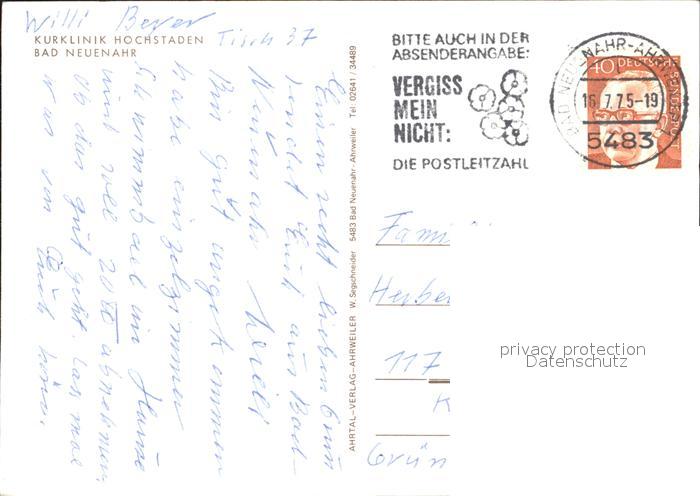 Willi Beyer
KURKLINIK HOCHSTADEN
BAD NEUENAHR
Tisch 37
Einen recht lieben Gruß
sendet Euch aus Bad-
Neuenahr Willi
Bin gut angekommen
habe einzelzimmer
Schwimmbad im Hause
und soll 20 abnehmen,
ob das gut geht. Las mal
was von Euch hören.
AHRTAL-VERLAG-AHRWEILER W. Segschneider 5483 Bad Neuenahr - Ahrweiler Tel. 02641 / 34489
BITTE AUCH IN DER
ABSENDERANGABE:
VERGISS
MEIN
NICHT:
DIE POSTLEITZAHL
BAD NEUENAHR-AHRWEILER
16.7.75-19
5483
40 DEUTSCHE BUNDESPOST
Fami
Herber
117
K
Grün
privacy protection
Datenschutz